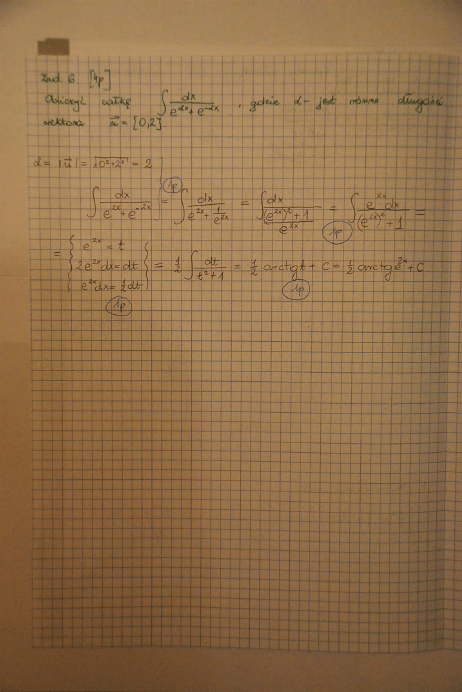 Zad. 6 [4p]
Obliczyć całkę ∫ dx / (e^{αx} + e^{-2x}), gdzie α - jest równe długości
wektora u⃗ = [0,2].
α = |u⃗| = √(0²+2²) = 2
∫ dx / (e^{2x} + e^{-2x}) = 1p ∫ dx / (e^{2x} + 1/e^{2x}) = ∫ dx / (((e^{2x})² + 1) / e^{2x}) = 1p ∫ e^{2x} dx / ((e^{2x})² + 1) =
= { e^{2x} = t
2e^{2x}dx = dt } = 1/2 ∫ dt / (t² + 1) = 1/2 arctg t + C = 1/2 arctg e^{2x} + C
e^{2x}dx = 1/2 dt
1p 1p